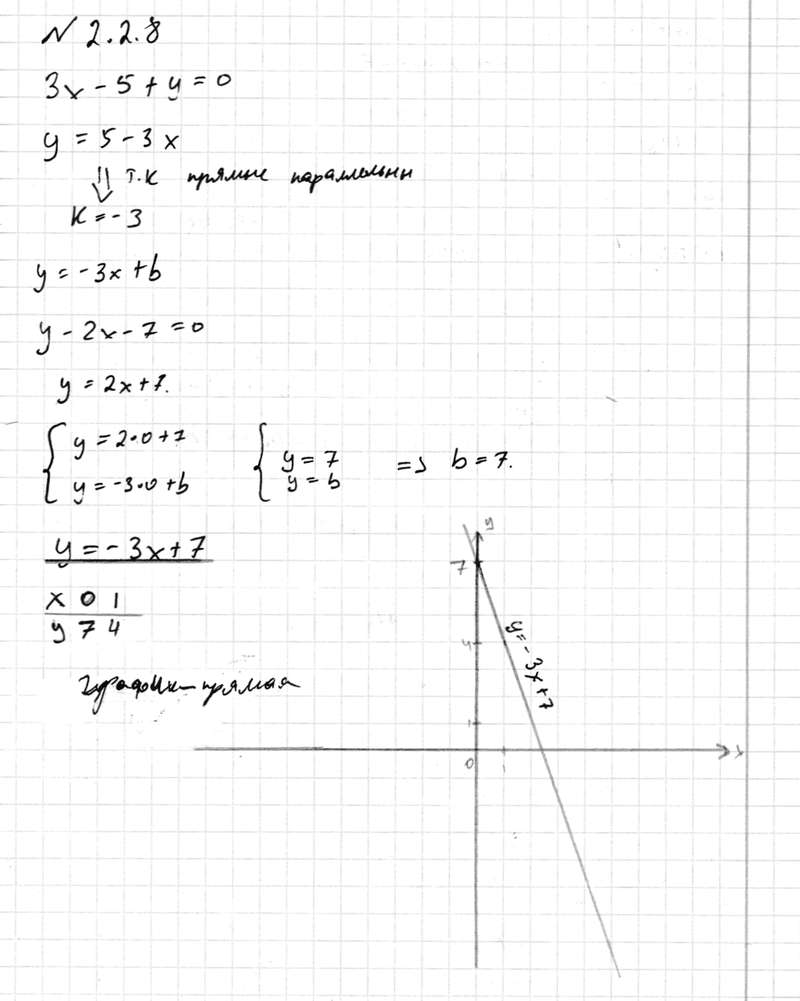 N 2.2.8
3x - 5 + y = 0
y = 5 - 3x
⇓ т.к прямые параллельны
K = -3
y = -3x + b
y - 2x - 7 = 0
y = 2x + 7.
{ y = 2·0 + 7 { y = 7 => b = 7.
{ y = -3·0 + b { y = b
y = -3x + 7
x 0 1
y 7 4
График - прямая
y
7
4
y = -3x + 7
1
0 1 x